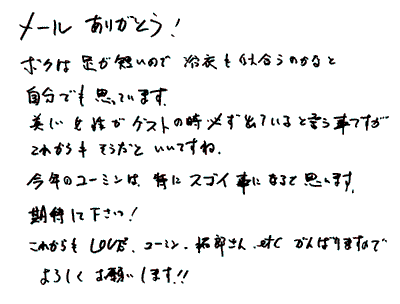 メール ありがとう!
ボクは 足が 短いので 浴衣も 似合うのかなと
自分でも 思っています.
美しい 女性が ゲストの時 必ず 出ていると 言う 事ですが
これからも そうだと いいですね.
今年のユーミンは, 特に スゴイ 事に なると 思います.
期待して下さい!
これからも LOVE, ユーミン, 拓郎さん, etc がんばりますので
よろしく お願いします!!